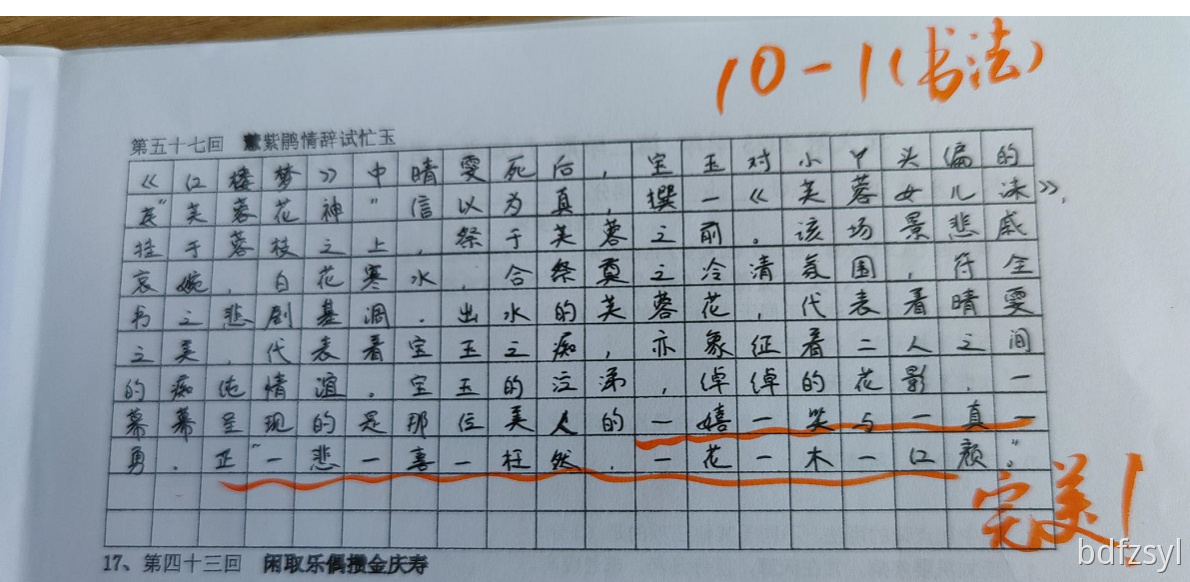 10-1(书法)
第五十七回 慧紫鹃情辞试忙玉
《红楼梦》中晴雯死后,宝玉对小丫头偏的
"芙蓉花神"信以为真,撰一《芙蓉女儿诔》,
挂于蓉枝之上,祭于芙蓉之前。该场景悲戚
哀婉,白花寒水,合祭奠之冷清氛围,符全
书之悲剧基调。出水的芙蓉花,代表着晴雯
之美,代表着宝玉之痴,亦象征着二人之间
的痴纯情谊。宝玉的泣涕,绰绰的花影,一
幕幕呈现的是那位美人的一嬉一笑与一真一
勇。正"一悲一喜一枉然,一花一木一红颜。"
完美!
17、第四十三回 闲取乐偶攒金庆寿
bdfzsyl